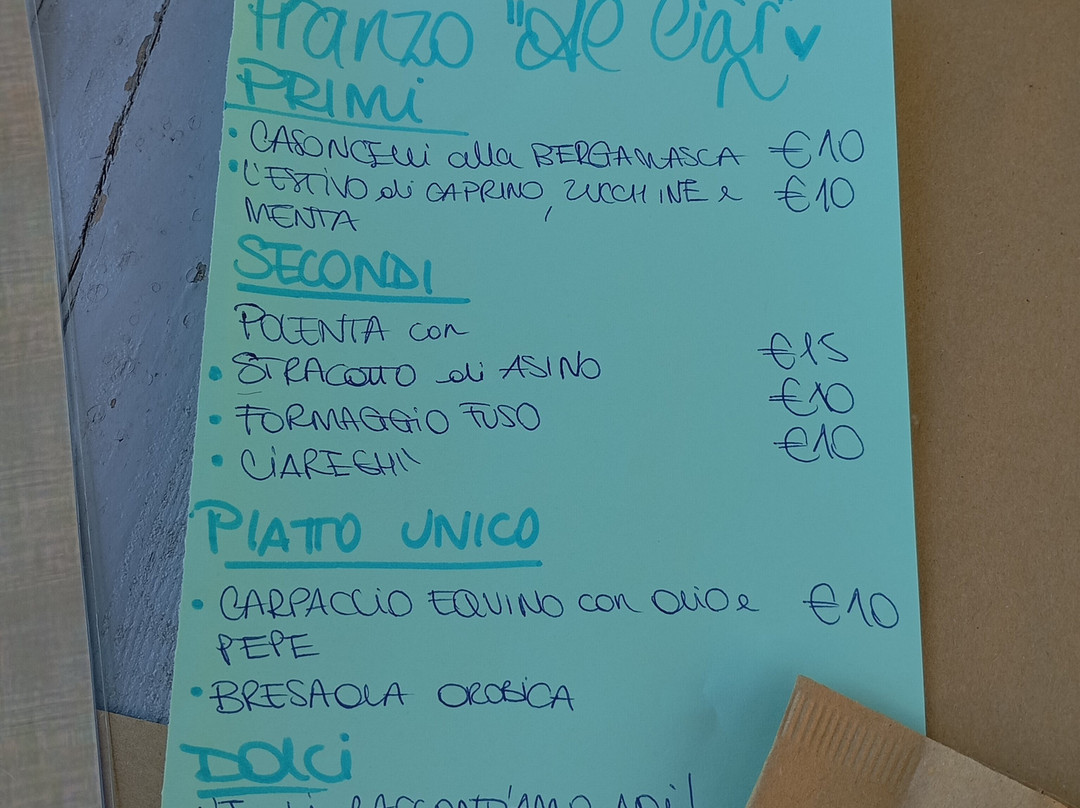 Pranzo "Al Ciar"
PRIMI
• CASONCELLI alla BERGAMASCA €10
• L'ESTIVO di CAPRINO, ZUCCHINE e €10
MENTA
SECONDI
POLENTA con
• STRACOTTO di ASINO €15
• FORMAGGIO FUSO €10
• CIAREGHII €10
PIATTO UNICO
• CARPACCIO EQUINO con OLIO e €10
PEPE
• BRESAOLA OROBICA
DOLCI
RACCONTIAMO NOI!